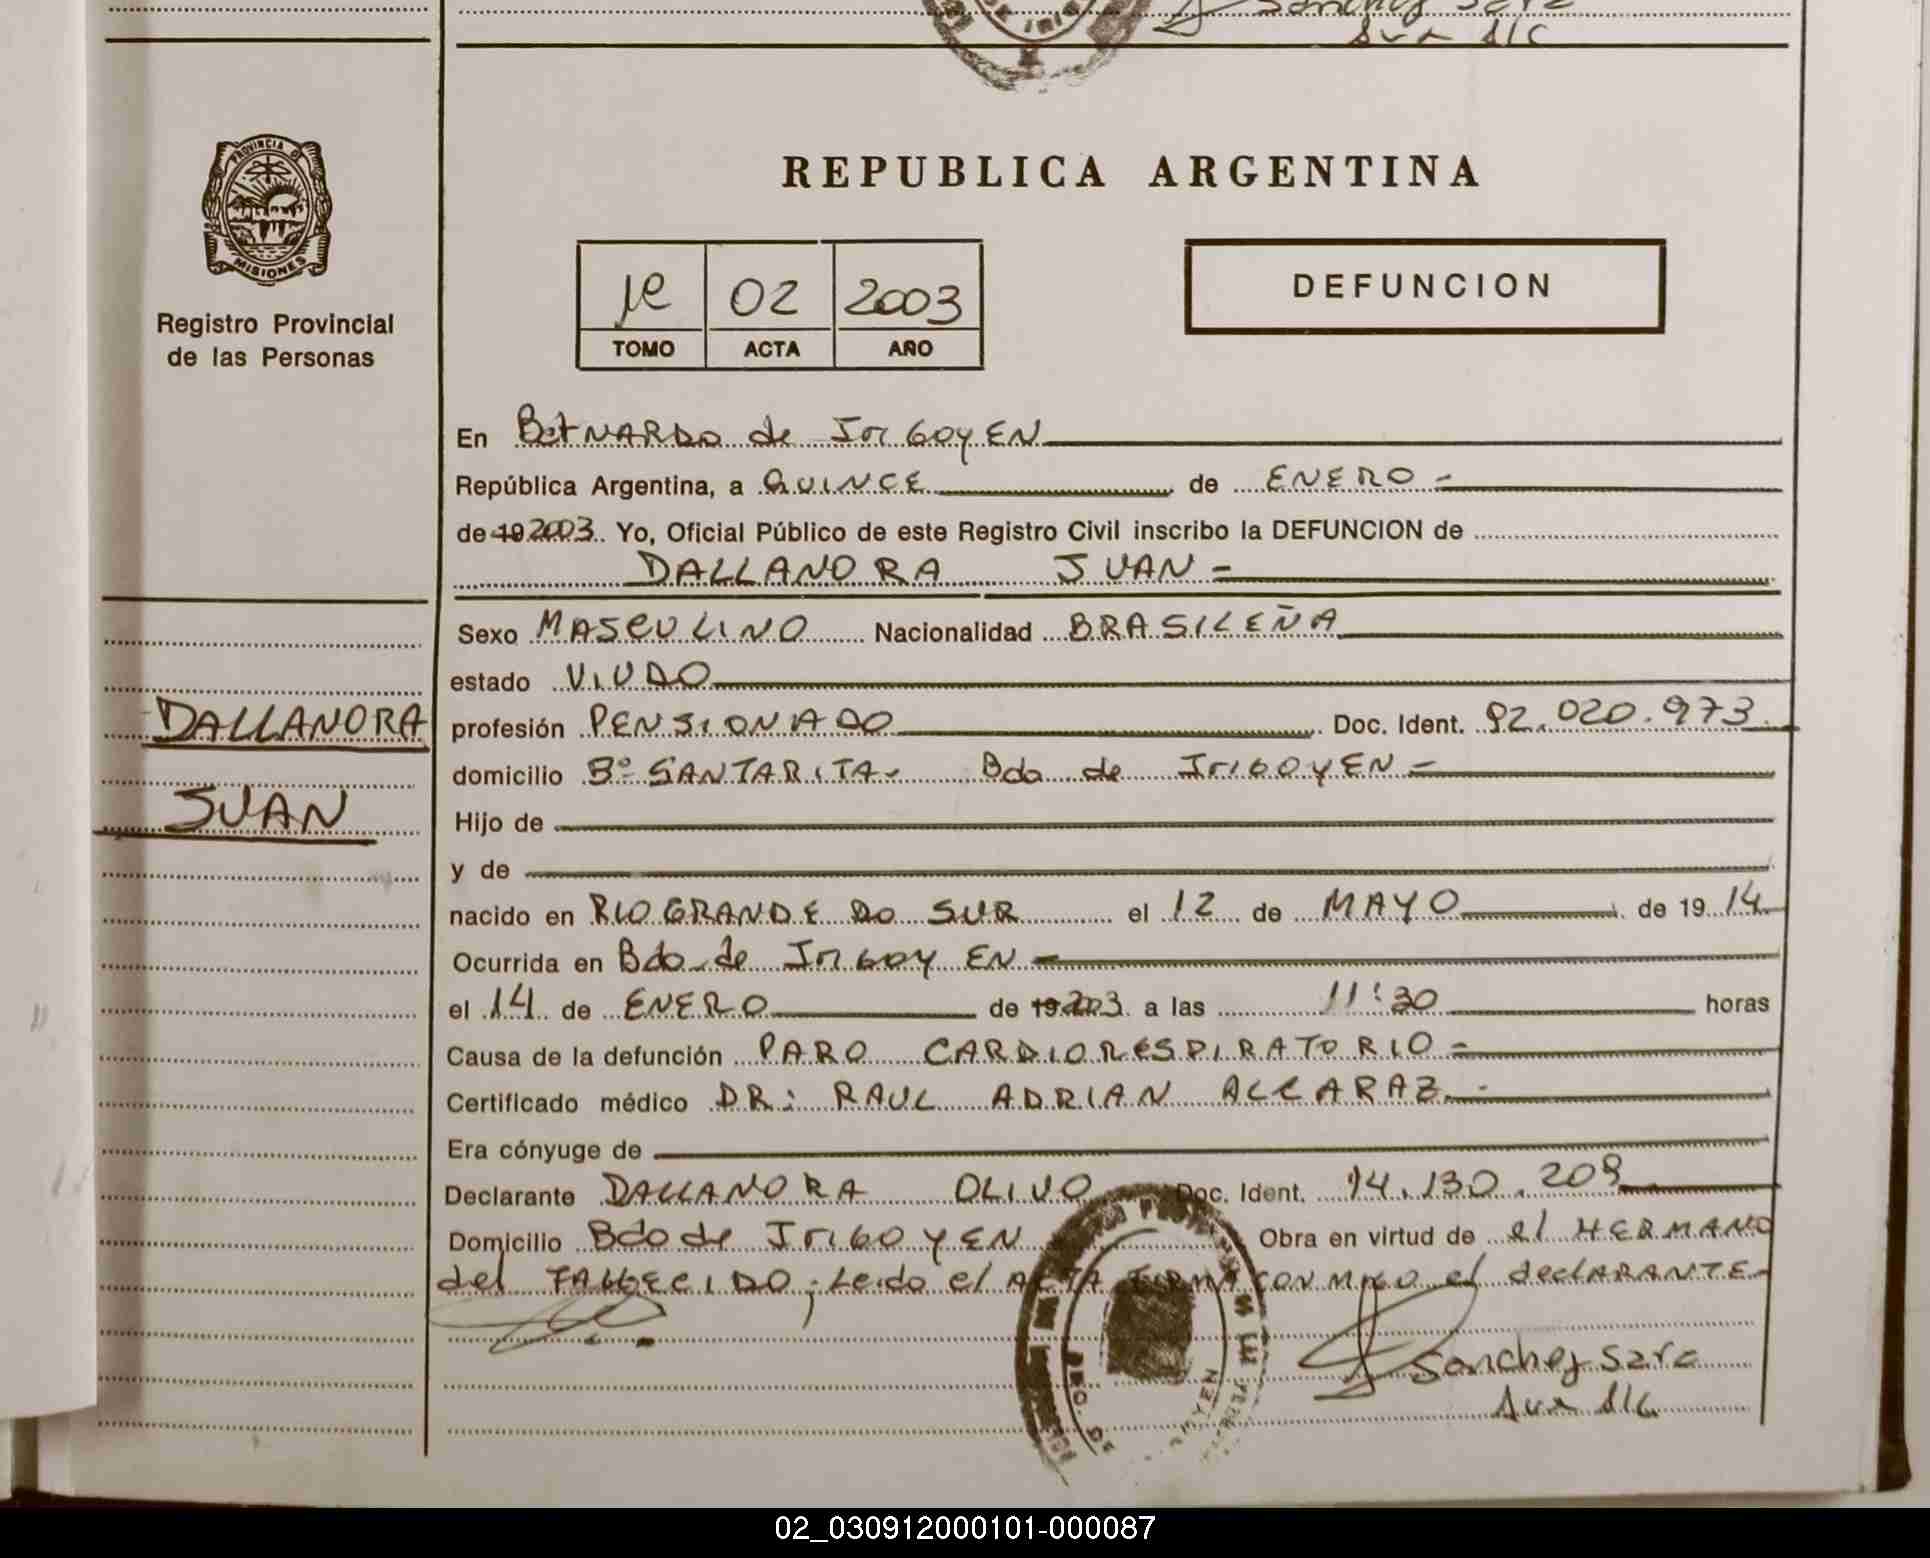 Sanchez Sara
Aux A/C
PROVINCIA D
MISIONES
Registro Provincial
de las Personas
REPUBLICA ARGENTINA
02 2003
TOMO ACTA AÑO
DEFUNCION
En BerNARDO de IriGoyEN
República Argentina, a QUINCE de ENERO -
de 19 2003. Yo, Oficial Público de este Registro Civil inscribo la DEFUNCION de
DALLANORA JUAN =
Sexo MASCULINO Nacionalidad BRASILEÑA
estado VIUDO
DALLANORA
profesión PENSIONADO Doc. Ident. 92.020.973
domicilio Bº SANTA RITA - Bdo de IriGoyEN =
JUAN
Hijo de
y de
nacido en RIO GRANDE DO SUR el 12 de MAYO de 19 14
Ocurrida en Bdo de IriGoyEN -
el 14 de ENERO de 19 2003. a las 11:30 horas
Causa de la defunción PARO CARDIORESPIRATORIO =
Certificado médico DR: RAUL ADRIAN ALCARAZ. -
Era cónyuge de
Declarante DALLANORA OLIVO Doc. Ident. 14.130.209
Domicilio Bdo de IriGoyEN Obra en virtud de el HERMANO
del FALLECIDO; Leido el ACTA FIRMA CONMIGO el declARANTE -
Sanchez Sara
Aux A/C
02_030912000101-000087